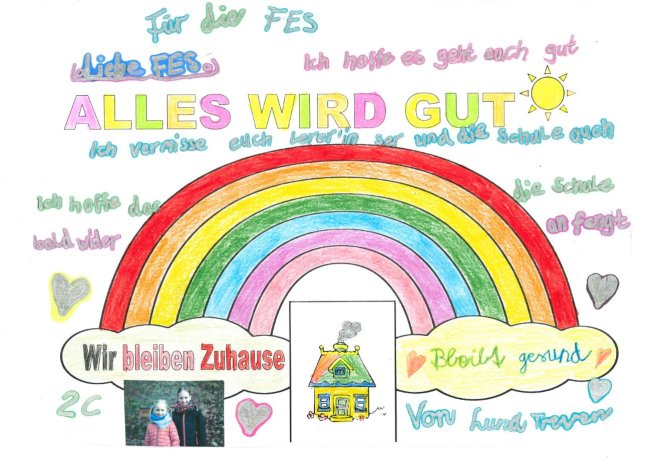 Für die FES
Liebe FES
Ich hoffe es geht euch gut
ALLES WIRD GUT
Ich vermisse euch Lerer'in ser und die Schule auch
Ich hoffe das
die Schule
bald wider
an fengt
Wir bleiben Zuhause
Bleibt gesund
2C
Von